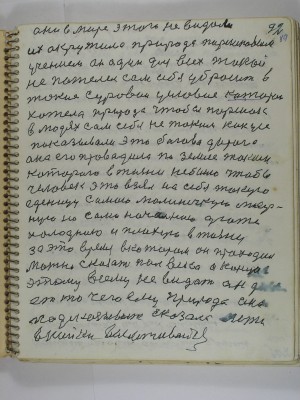 они в мире этого не видали 92
их окружило природа паршивым
учением он один для всех такой
не пожелел сам себя убросит в
такие суровыи условие которая
хотела природа чтобы поренок
в людях сам себя не таким как уже
показывали это багово другого
она его проводила по земле таким
которого в жизни небыло чтобы
человек это взял на себя такую
еденицу самою маличкую
ную но само начально
холодною и плохую в жизни
за это время в котором он проходил
можно сказать конца
этому всему не видать он
ет то чего ему природа она
подсказывает сказала